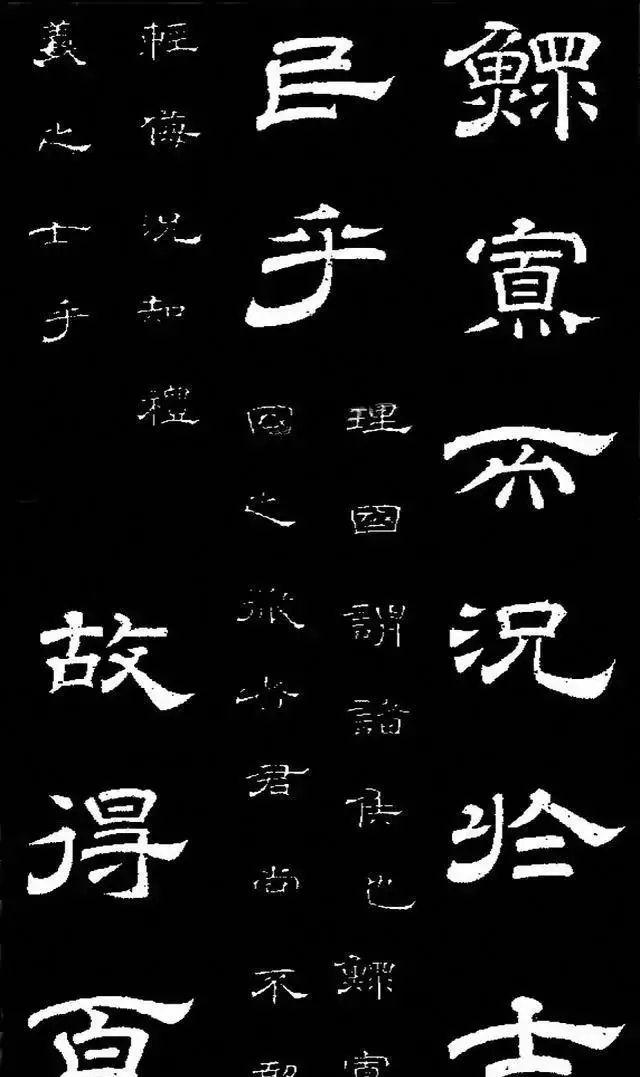 鰥寡而況於士
民乎
理國謂諸侯也鰥寡
國之微者君尚不敢
輕侮況知禮
義之士乎
故得百